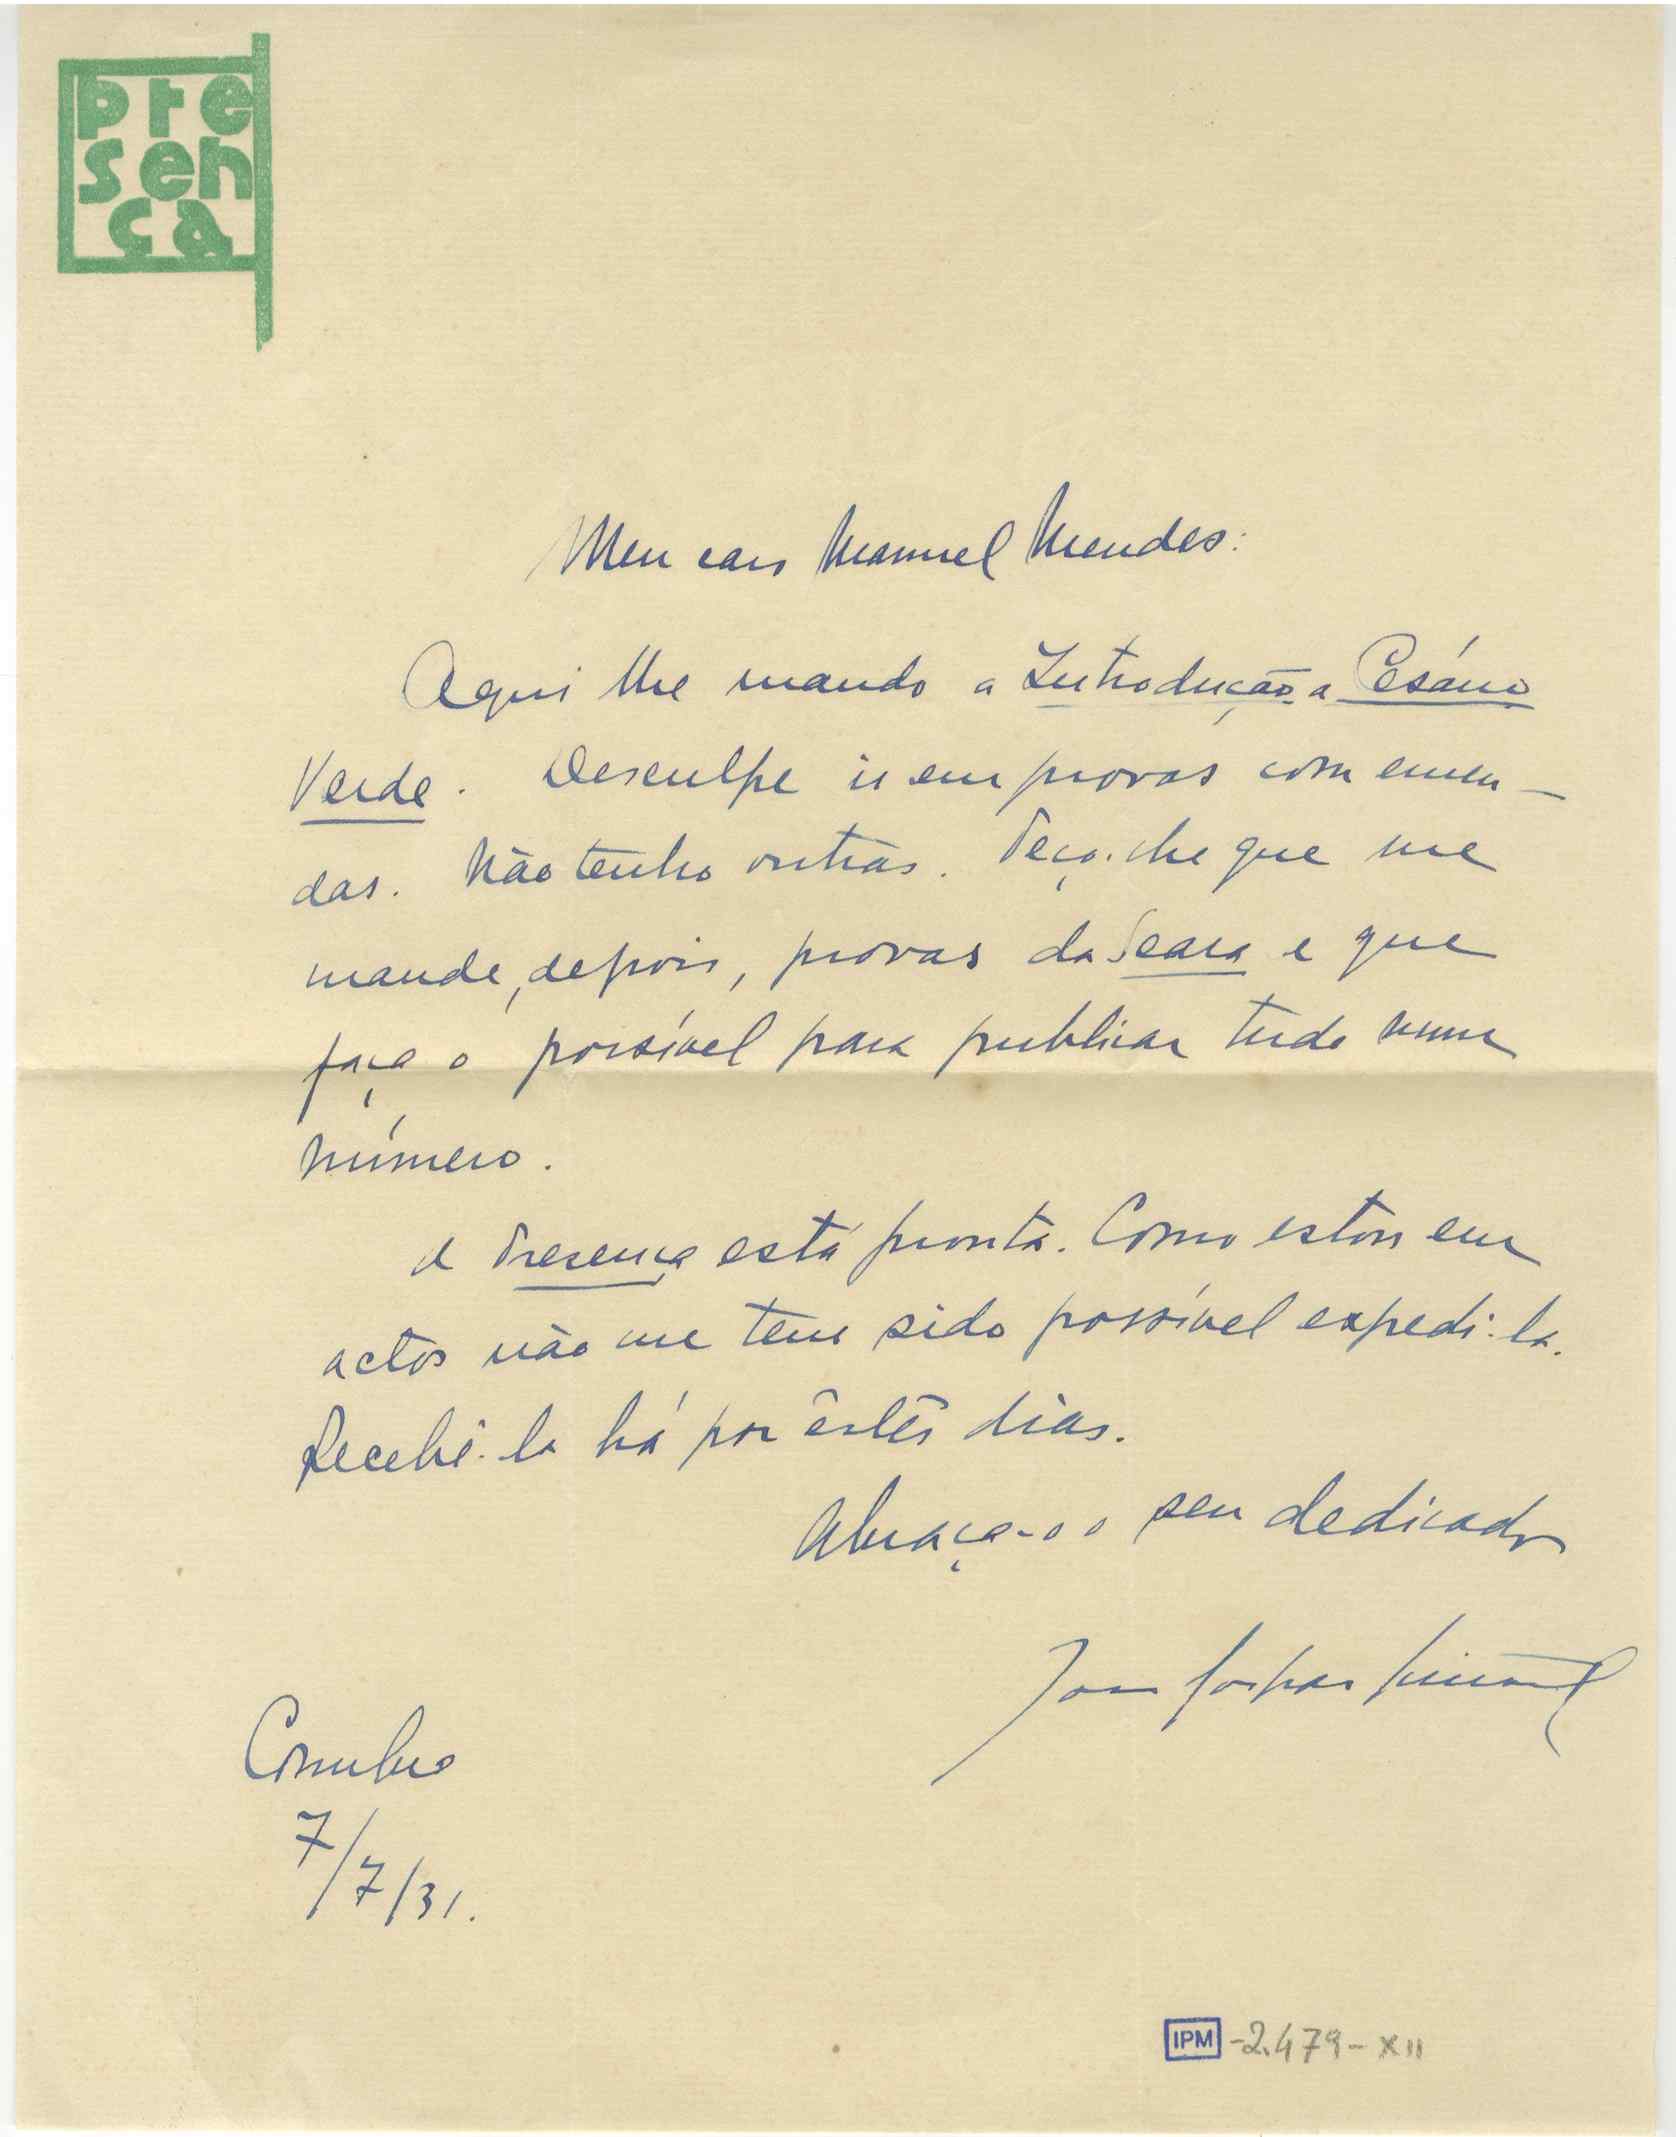 pre
sen
ça
Meu caro Manuel Mendes:
Aqui lhe mando a Introdução a Cesário
Verde. Desculpe ir em provas com emen-
das. Não tenho outras. Peço-lhe que me
mande, depois, provas da Seara e que
faça o possível para publicar tudo num
número.
A Presença está pronta. Como estou em
actos não me tem sido possível expedi-la.
Recebê-la há por êstes dias.
Abraça-o o seu dedicado
João Gaspar Simões
Coimbra
7/7/31.
IPM -2.479-XII